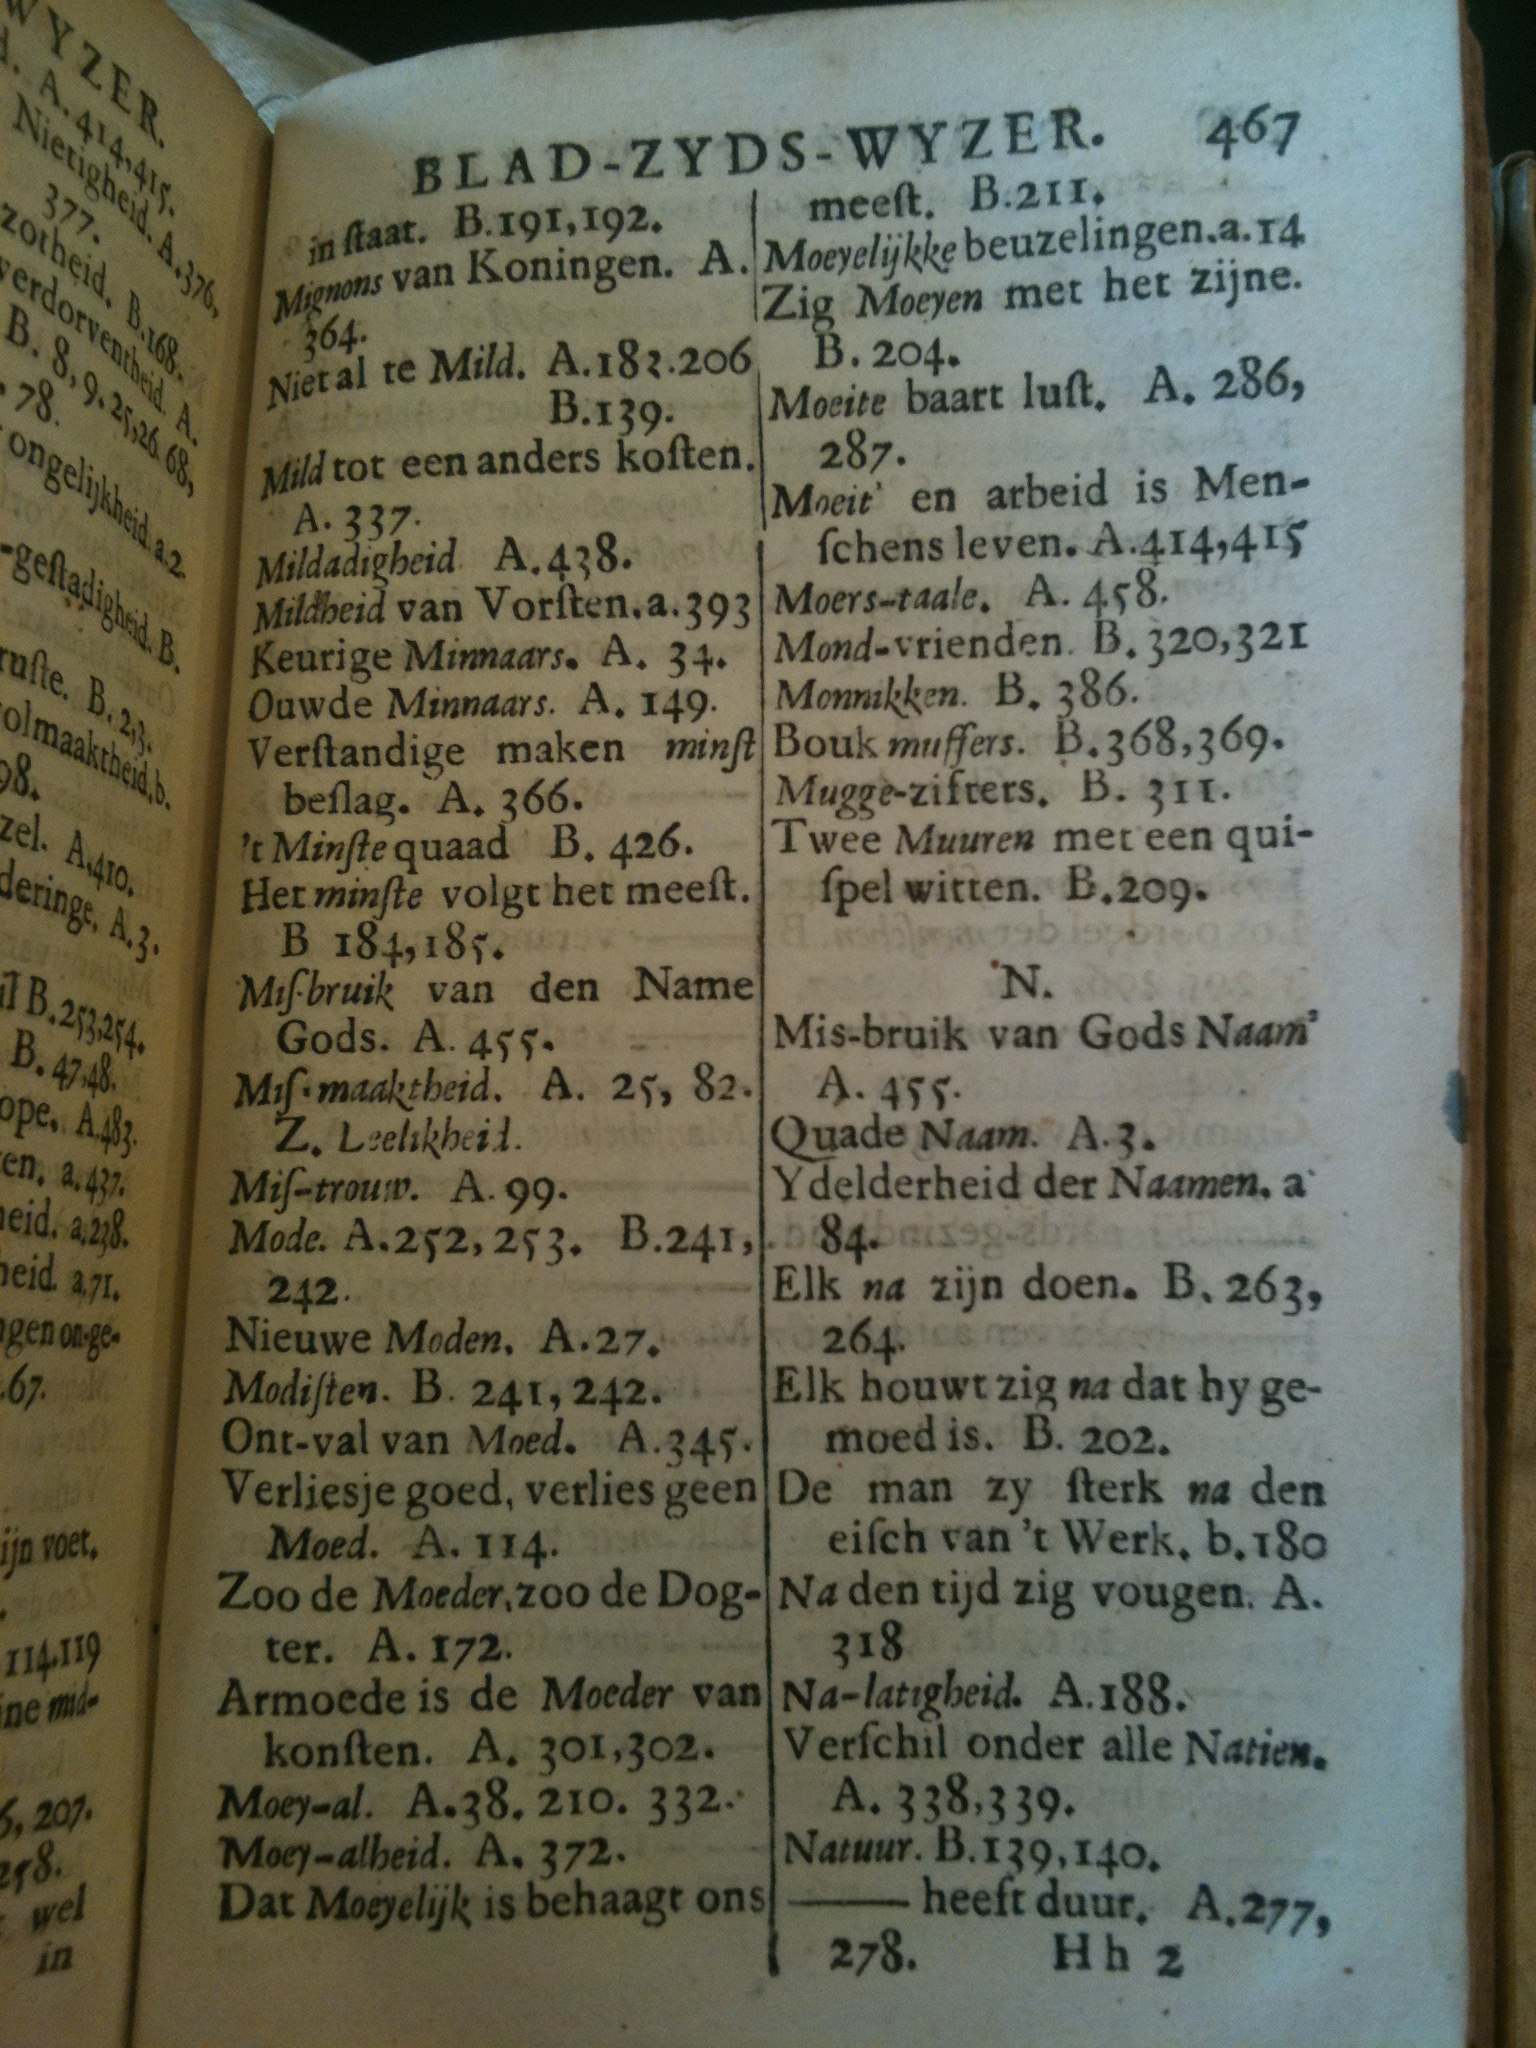 WYZER.
A. 414,415.
Nietigheid. A. 376,
377.
zotheid. B.168.
verdorventheid. A.
B. 8, 9. 25,26. 68,
78.
ongelijkheid. a.2
-geſtadigheid. B.
ruſte. B. 2,3.
volmaaktheid. b.
98.
zel. A,410.
deringe. A.3.
B.253,254.
B. 47,48.
ope. A.483.
en. a.437.
heid. a,238.
heid. a,71.
ngen on-ge-
.67.
ijn voet.
114.119
ine mid-
6, 207.
258.
wel
in
BLAD-ZYDS-WYZER. 467
in ſtaat. B.191,192.
Mignons van Koningen. A.
364.
Niet al te Mild. A.182.206
B.139.
Mild tot een anders koſten.
A. 337.
Mildadigheid A.438.
Mildheid van Vorſten.a.393
Keurige Minnaars. A. 34.
Ouwde Minnaars. A. 149.
Verſtandige maken minſt
beſlag. A. 366.
't Minſte quaad B. 426.
Het minſte volgt het meeſt.
B 184,185.
Miſ-bruik van den Name
Gods. A. 455.
Miſ-maaktheid. A. 25, 82.
Z. Leelikheid.
Miſ-trouw. A. 99.
Mode. A.252,253. B.241,
242.
Nieuwe Moden. A.27.
Modiſten. B. 241,242.
Ont-val van Moed. A.345.
Verliesje goed, verlies geen
Moed. A. 114.
Zoo de Moeder,zoo de Dog-
ter. A. 172.
Armoede is de Moeder van
konſten. A. 301,302.
Moey-al. A.38. 210. 332.
Moey-alheid. A. 372.
Dat Moeyelijk is behaagt ons
meeſt. B.211.
Moeyelijkke beuzelingen.a.14
Zig Moeyen met het zijne.
B. 204.
Moeite baart luſt. A. 286,
287.
Moeit' en arbeid is Men-
ſchens leven. A.414,415
Moers-taale. A. 458.
Mond-vrienden. B. 320,321
Monnikken. B. 386.
Bouk muffers. B.368,369.
Mugge-zifters. B. 311.
Twee Muuren met een qui-
ſpel witten. B.209.
N.
Mis-bruik van Gods Naam'
A. 455.
Quade Naam. A.3.
Ydelderheid der Naamen. a
84.
Elk na zijn doen. B. 263,
264.
Elk houwt zig na dat hy ge-
moed is. B. 202.
De man zy ſterk na den
eiſch van 't Werk. b.180
Na den tijd zig vougen. A.
318
Na-latigheid. A.188.
Verſchil onder alle Natien.
A. 338,339.
Natuur. B.139,140.
—— heeft duur. A.277,
278. Hh 2